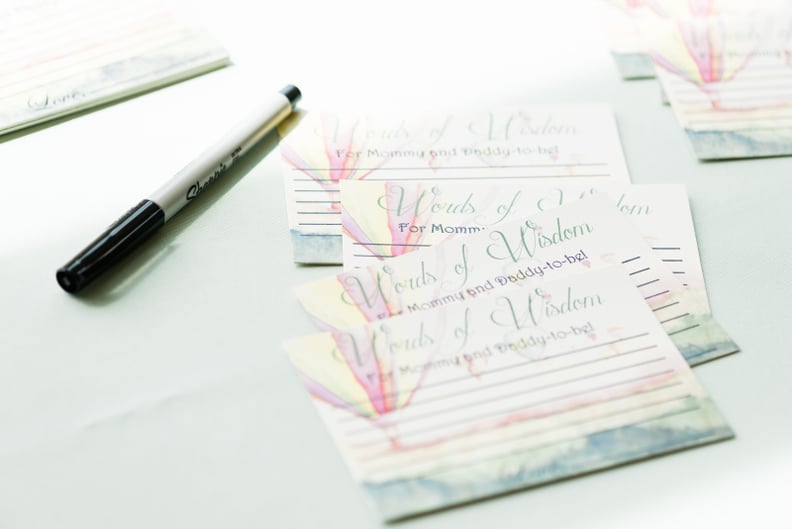 Love,
Sharpie
Words of Wisdom
For Mommy and Daddy-to-be!
Words of Wisdom
For Momm
Words of Wisdom
For Mommy and Daddy-to-be!
Words of Wisdom
For Mommy and Daddy-to-be!